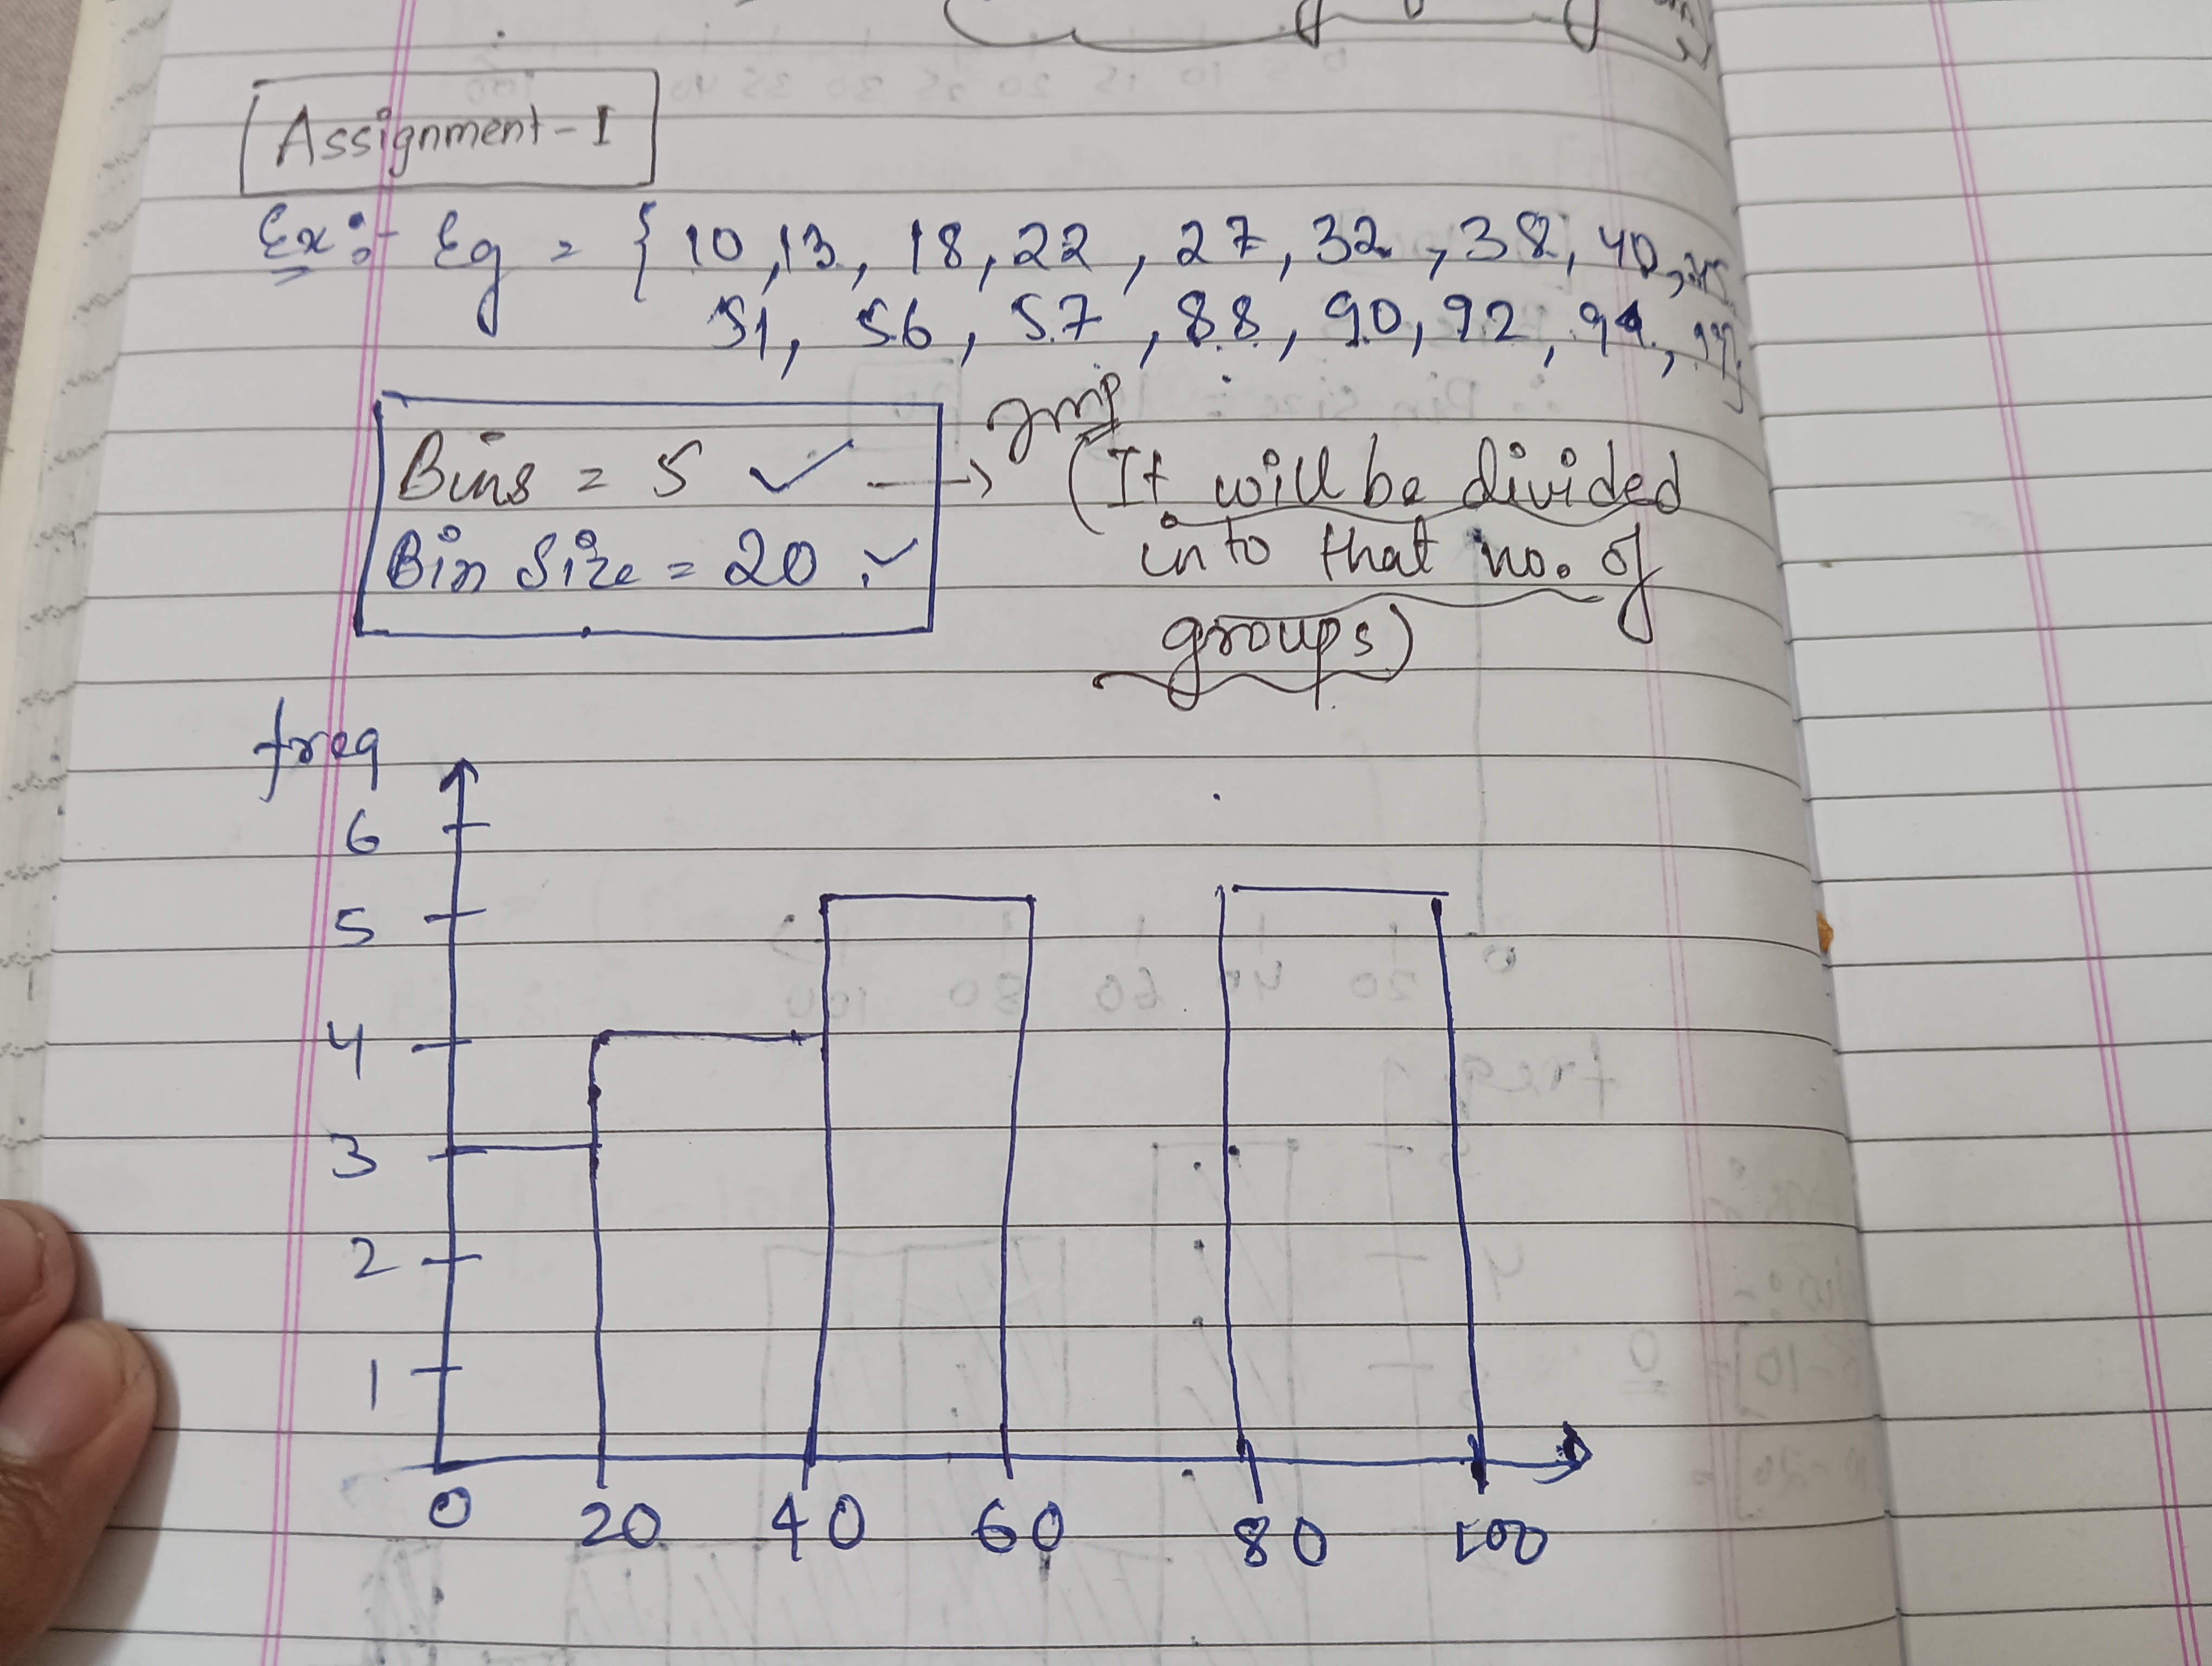 Assignment-I
Ex:- Eg = { 10, 13, 18, 22, 27, 32, 38, 40, 45,
51, 56, 57, 88, 90, 92, 94, 99}
Bins = 5 ✓ → Imp
(It will be divided
into that no. of
groups)
Bin Size = 20 ✓
freq
6
5
4
3
2
1
0 20 40 60 80 100